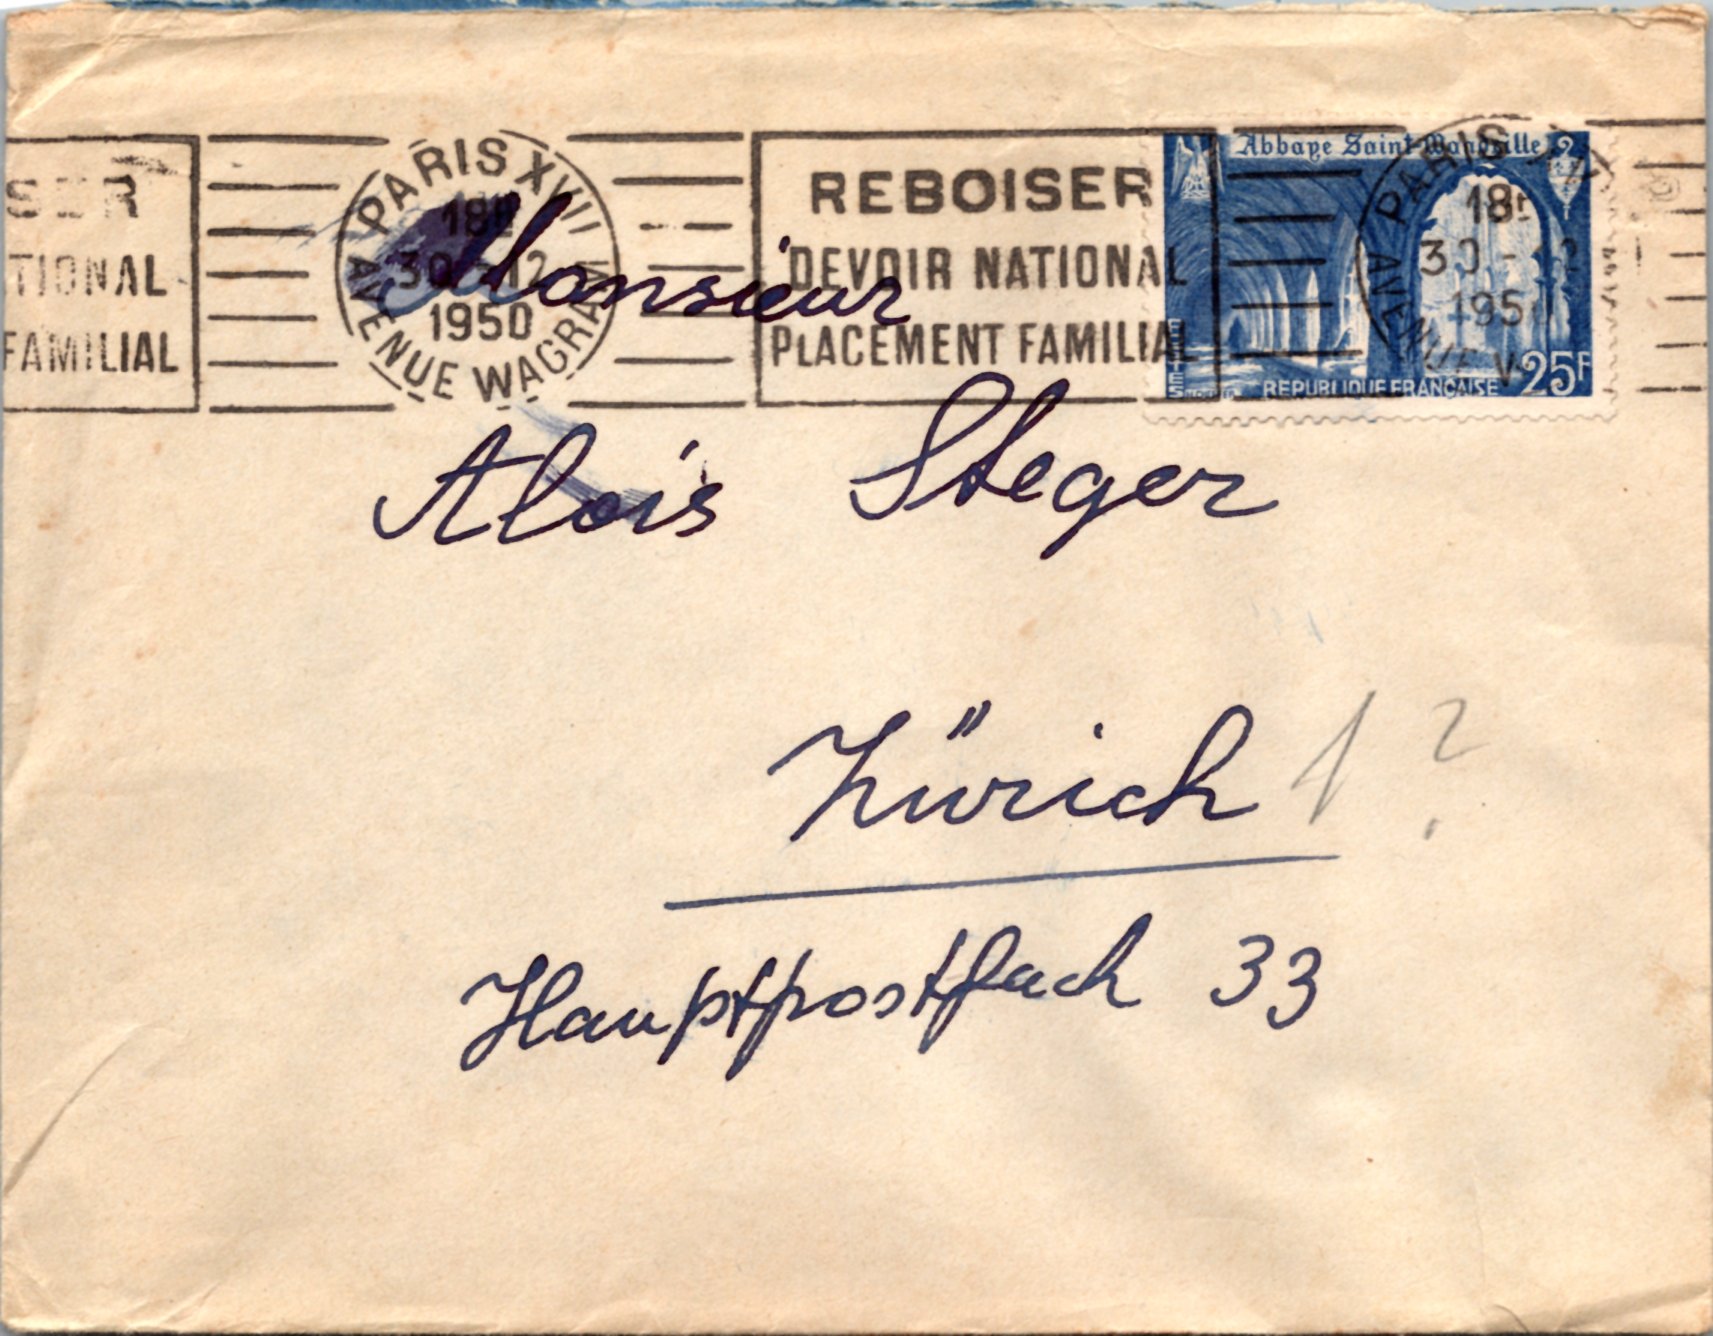 SER
TIONAL
FAMILIAL
PARIS XVII
18H
30 - 12
1950
AVENUE WAGRAM
REBOISER
DEVOIR NATIONAL
PLACEMENT FAMILIAL
Abbaye Saint Wandrille
PARIS XVII
18H
30 - 12
1950
AVENUE W
POSTES
25F
REPUBLIQUE FRANÇAISE
Monsieur
Alois Steger
Zürich 1 ?
Hauptpostfach 33